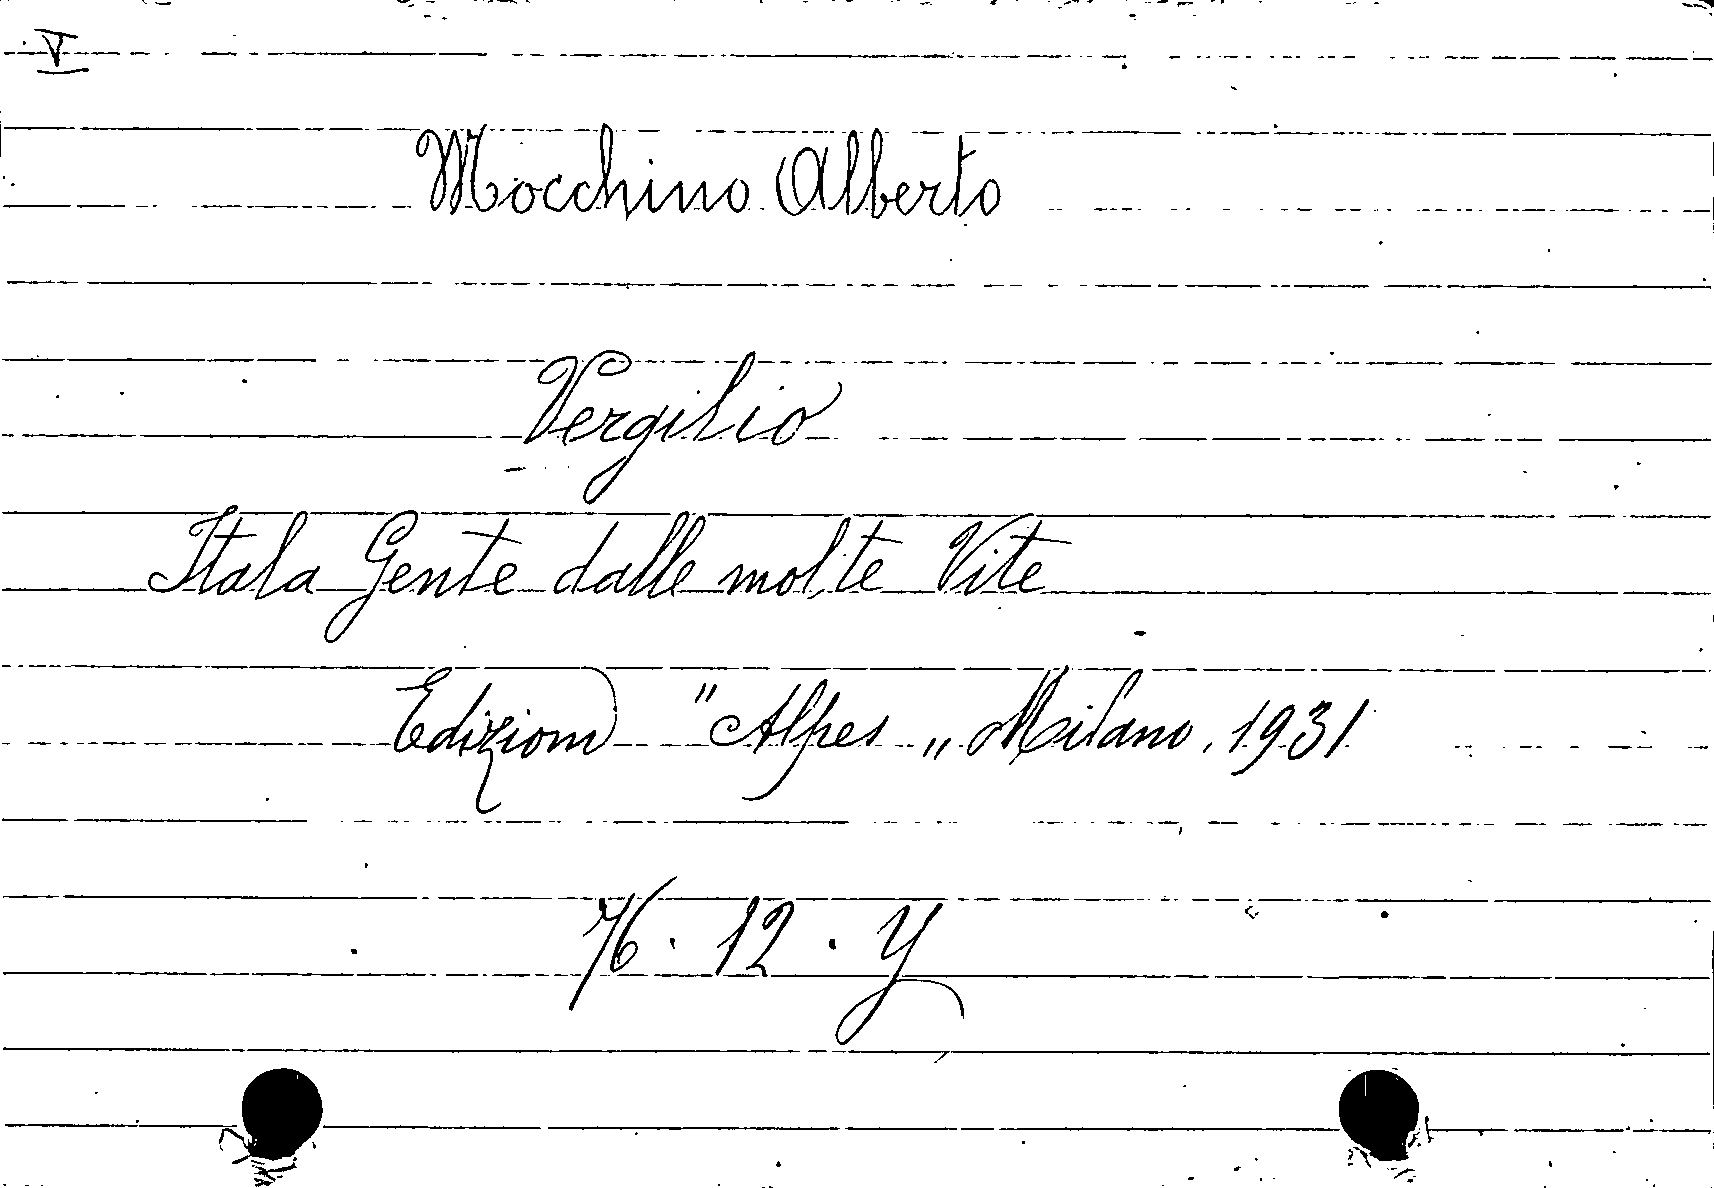 V
Mocchino Alberto
Vergilio
Itala Gente dalle molte Vite
Edizioni "Alpes„ Milano, 1931
76 · 12 · Y